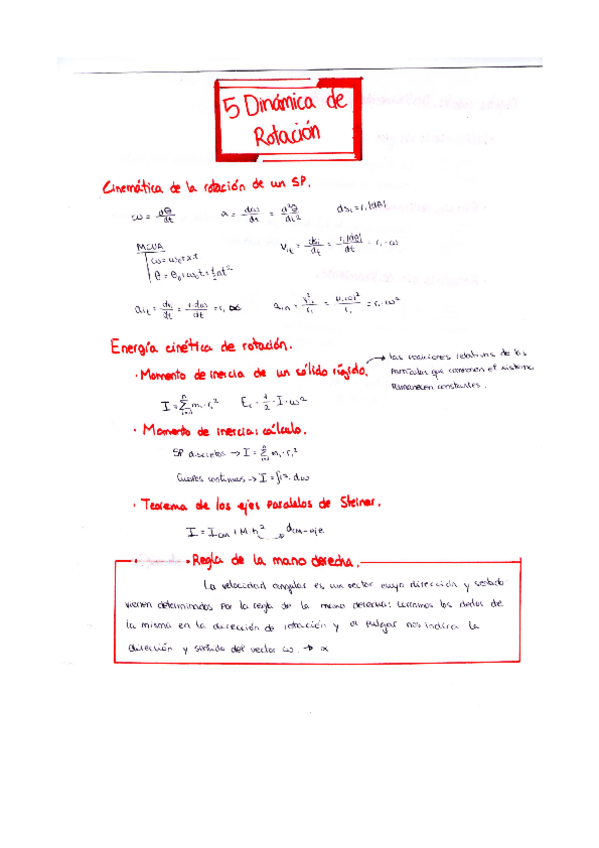 5 Dinámica de
Rotación
Cinemática de la rotación de un SP.
ω = dθ/dt    α = dω/dt = d²θ/dt²    dsᵢ = rᵢ |dθ|
MCUA
ω = ω₀ + α·t
θ = θ₀ + ω₀t + ½αt²
Vᵢₜ = dsᵢ/dt = rᵢ|dθ|/dt = rᵢ·ω
aᵢₜ = dvᵢ/dt = rᵢ·dω/dt = rᵢ α    aᵢₙ = vᵢ²/rᵢ = rᵢ·ω²
Energía cinética de rotación.
· Momento de inercia de un sólido rígido. → las posiciones relativas de las
partículas que componen el sistema
permanecen constantes.
I = Σⁿᵢ₌₁ mᵢ·rᵢ²    Ec = ½·I·ω²
· Momento de inercia: cálculo.
SP discretos → I = Σⁿᵢ₌₁ mᵢ·rᵢ²
Cuerpos continuos → I = ∫r²·
· Teorema de los ejes paralelos de Steiner.
I = I_CM + M·h² → d CM-eje
· Regla de la mano derecha.
La velocidad angular es un vector cuya dirección y sentido
vienen determinados por la regla de la mano derecha: los dedos de
la misma en la dirección de rotación y el pulgar nos indica la
dirección y sentido del vector ω. → α